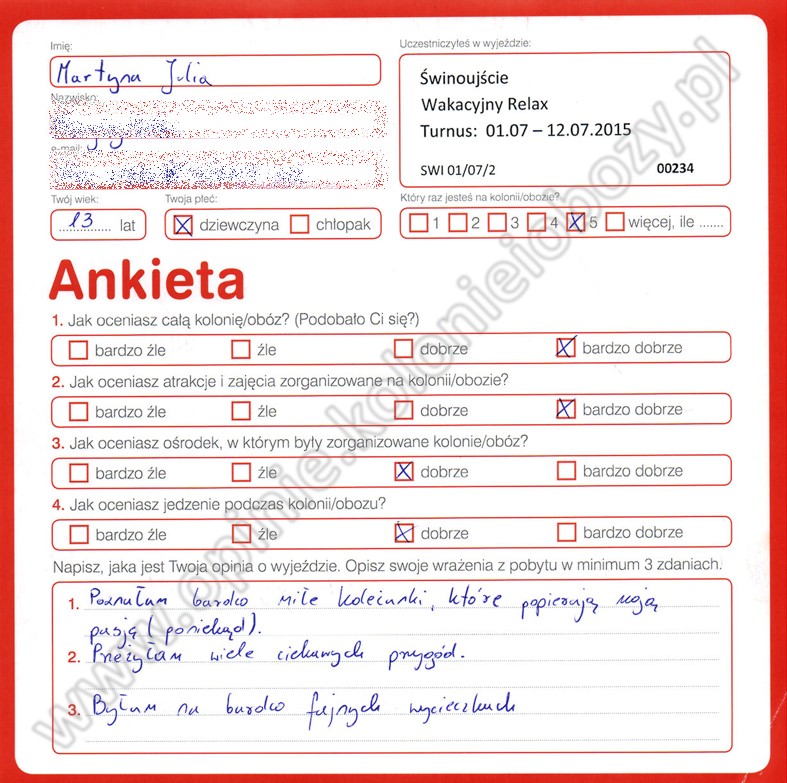 Imię:
Uczestniczyłeś w wyjeździe:
Martyna Julia
Świnoujście
Wakacyjny Relax
Turnus: 01.07 – 12.07.2015
SWI 01/07/2 00234
Nazwisko:
e-mail:
Twój wiek:
Twoja płeć:
Który raz jesteś na kolonii/obozie?
13 lat
dziewczyna chłopak
1 2 3 4 5 więcej, ile .......
Ankieta
1. Jak oceniasz całą kolonię/obóz? (Podobało Ci się?)
bardzo źle źle dobrze bardzo dobrze
2. Jak oceniasz atrakcje i zajęcia zorganizowane na kolonii/obozie?
bardzo źle źle dobrze bardzo dobrze
3. Jak oceniasz ośrodek, w którym były zorganizowane kolonie/obóz?
bardzo źle źle dobrze bardzo dobrze
4. Jak oceniasz jedzenie podczas kolonii/obozu?
bardzo źle źle dobrze bardzo dobrze
Napisz, jaka jest Twoja opinia o wyjeździe. Opisz swoje wrażenia z pobytu w minimum 3 zdaniach.
1. Poznałam bardzo miłe koleżanki, które popierają moją
pasję (poniekąd).
2. Przeżyłam wiele ciekawych przygód.
3. Byłam na bardzo fajnych wycieczkach
www.opinie.kolonieiobozy.pl